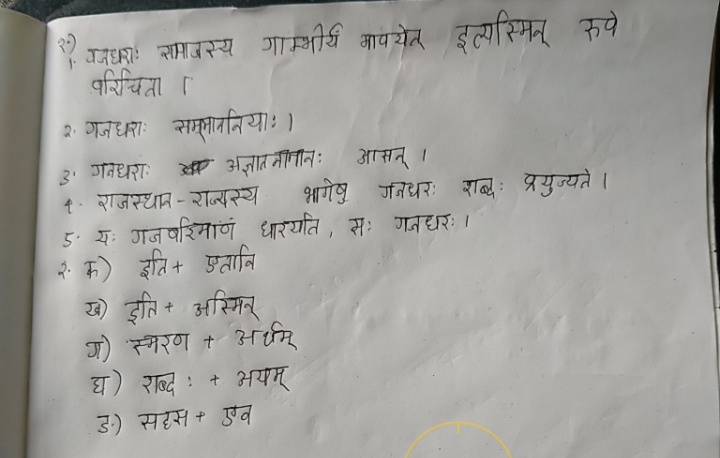 १)
1. गजधराः समाजस्य गाम्भीर्य मापयेत् इत्यस्मिन् रुपे
परिचिता ।
२. गजधराः सम्माननियाः ।
3. गजधराः अज्ञातनामानः आसन् ।
4. राजस्थान - राज्यस्य भागेषु गजधरः शब्दः प्रयुज्यते ।
5. यः गजपरिमाणं धारयति, सः गजधरः ।
२. क) इति + एतानि
ख) इति + अस्मिन्
ग) स्मरण + अर्थम्
घ) शब्द : + अयम्
ङ) सहसा + एव